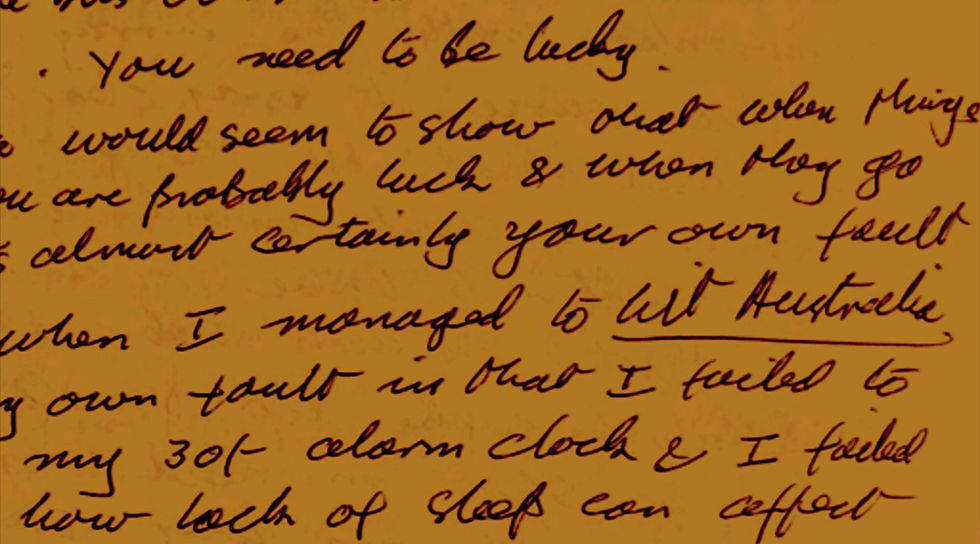 . You need to be lucky.
would seem to show that when things
ou are probably luck & when they go
s almost certainly your own fault
when I managed to hit Australia
y own fault in that I failed to
my 30/- alarm clock & I failed
how lack of sleep can affect